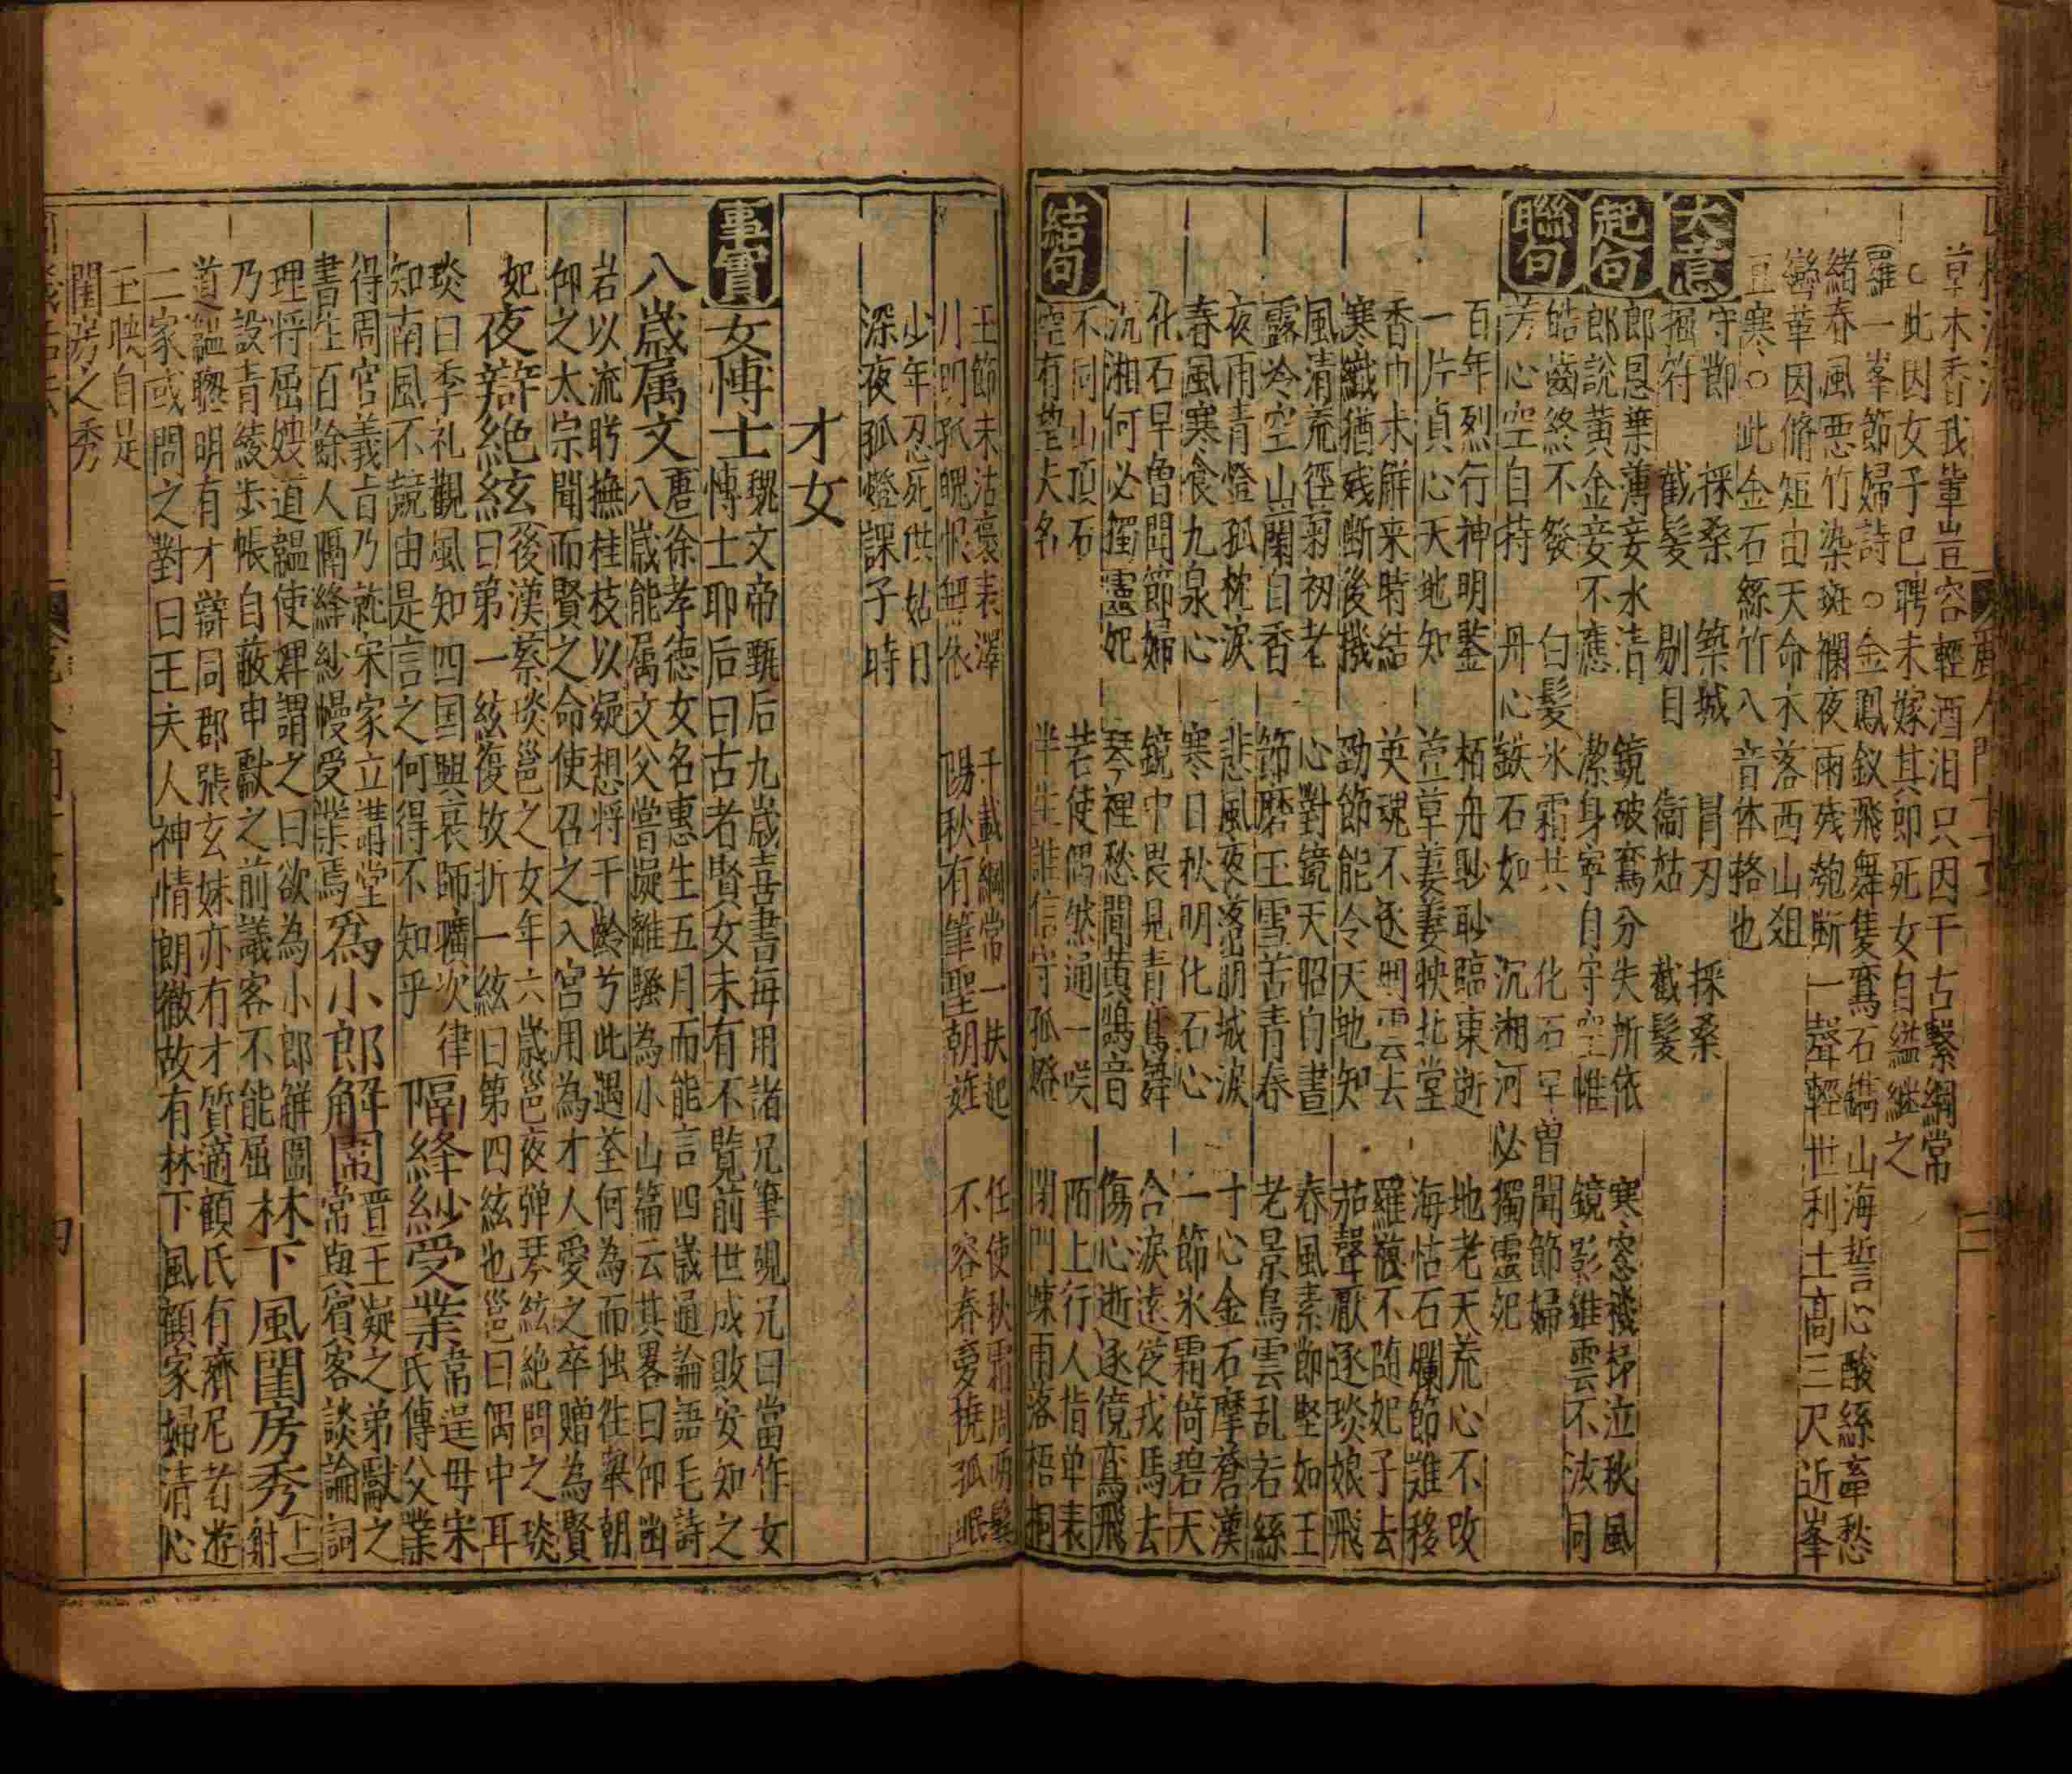 草木香我輩豈容輕酒泪只因千古繫綱常
此因女子已聘未嫁其郎死女自縊継之
羅一峯節婦詩○金鳳釵飛舞隻鸞石鐫山海誓心酸絲牽愁
緒春風悪竹染斑斕夜雨殘匏断一聲輕世利土高三尺近峯
鸞華因脩短由天命木落西山
豆寒○此金石絲竹八音体格也
大意
守節 採桑 築城 冐刃 採桑
掘符 截髪 剔目 衞姑 截髪
起句
郎恩葉薄妾水清 鏡破鸞分失所依 寒窓機杼泣秋風
郎說黄金妾不應 潔身寧自守空惟 鏡影雖雲不汝同
聯句
皓齒終不發 白髪氷霜共 化石早曽聞節婦
芳心空自持 丹心鉄石如 沉湘河必獨靈妃
百年烈行神明鑒 栢舟耿耿臨東逝 地老天荒心不改
一片貞心天地知 萱草萋萋映北堂 海枯石爛節難移
香巾未觧来時結 英魂不逐明雲去 羅襪不随妃子去
寒纖猶残断後機 勁節能令天地知 茄聲厭逐琰娘飛
風清荒徑菊初老 心對鏡天昭白晝 春風素節堅如玉
露冷空山蘭自香 節磨玉雪苦青春 老景烏雲乱若絲
夜雨青燈孤枕淚 悲風夜落崩城淚 寸心金石摩蒼漢
春風寒食九泉心 寒日秋明化石心 一節氷霜倚碧天
化石早曽聞節婦 鏡中畏見青鸞舞 含淚遠從戎馬去
沉湘何必獨靈妃 琴裡愁聞黄鵠音 傷心逝逐鏡鸞飛
結句
不同山頂石 若使偶然通一咲 陌上行人指単表
空有望夫名 半生誰信守孤燈 閉門竦雨落梧桐
王節未沽褒表澤 千載綱常一扶起 任使秋霜凋兩鬂
川明孤魄恨無依 陽秋有筆聖朝旌 不容春夢撓孤眠
少年忍死供姑日
深夜孤燈課子時
才女
事實
女博士 魏文帝甄后九歲喜書毎用諸兄筆硯兄曰當作女
博士耶后曰古者賢女未有不覧前世成敗安知之
八歲属文 唐徐孝德女名惠生五月而能言四歲通論語毛詩
八歲能属文父嘗擬離騷為小山篇云其畧曰仰幽
岩以流眄撫桂枝以凝想将千齡兮此遇荃何為而独往寀朝
仰之太宗聞而賢之命使召之入宮用為才人愛之卒贈為賢
妃 夜辯絶絃 後漢蔡琰邕之女年六歲邕夜弹琴絃絶問之琰
曰第一絃復故折一絃曰第四絃也邕曰偶中耳
琰曰季札觀風知四国興衰師曠次律 隔絳紗受業 常逞母宋
知南風不競由是言之何得不知乎 氏傳父業
得周官義旨乃就宋家立講堂 為小郎解圍 晋王凝之弟獻之
書生百餘人隔絳紗幔受業焉 常與賓客談論詞
理将屈媖道韞使婢謂之曰欲為小郎觧圍 林下風閨房秀 上
乃設青綾步帳自蔽申獻之前議客不能屈 射
道韞聰明有才辯同郡張玄妹亦有才質適顧氏有濟尼者遊
二家或問之對曰王夫人神情朗徹故有林下風顧家婦清心
玉映自足
閨房之秀
四